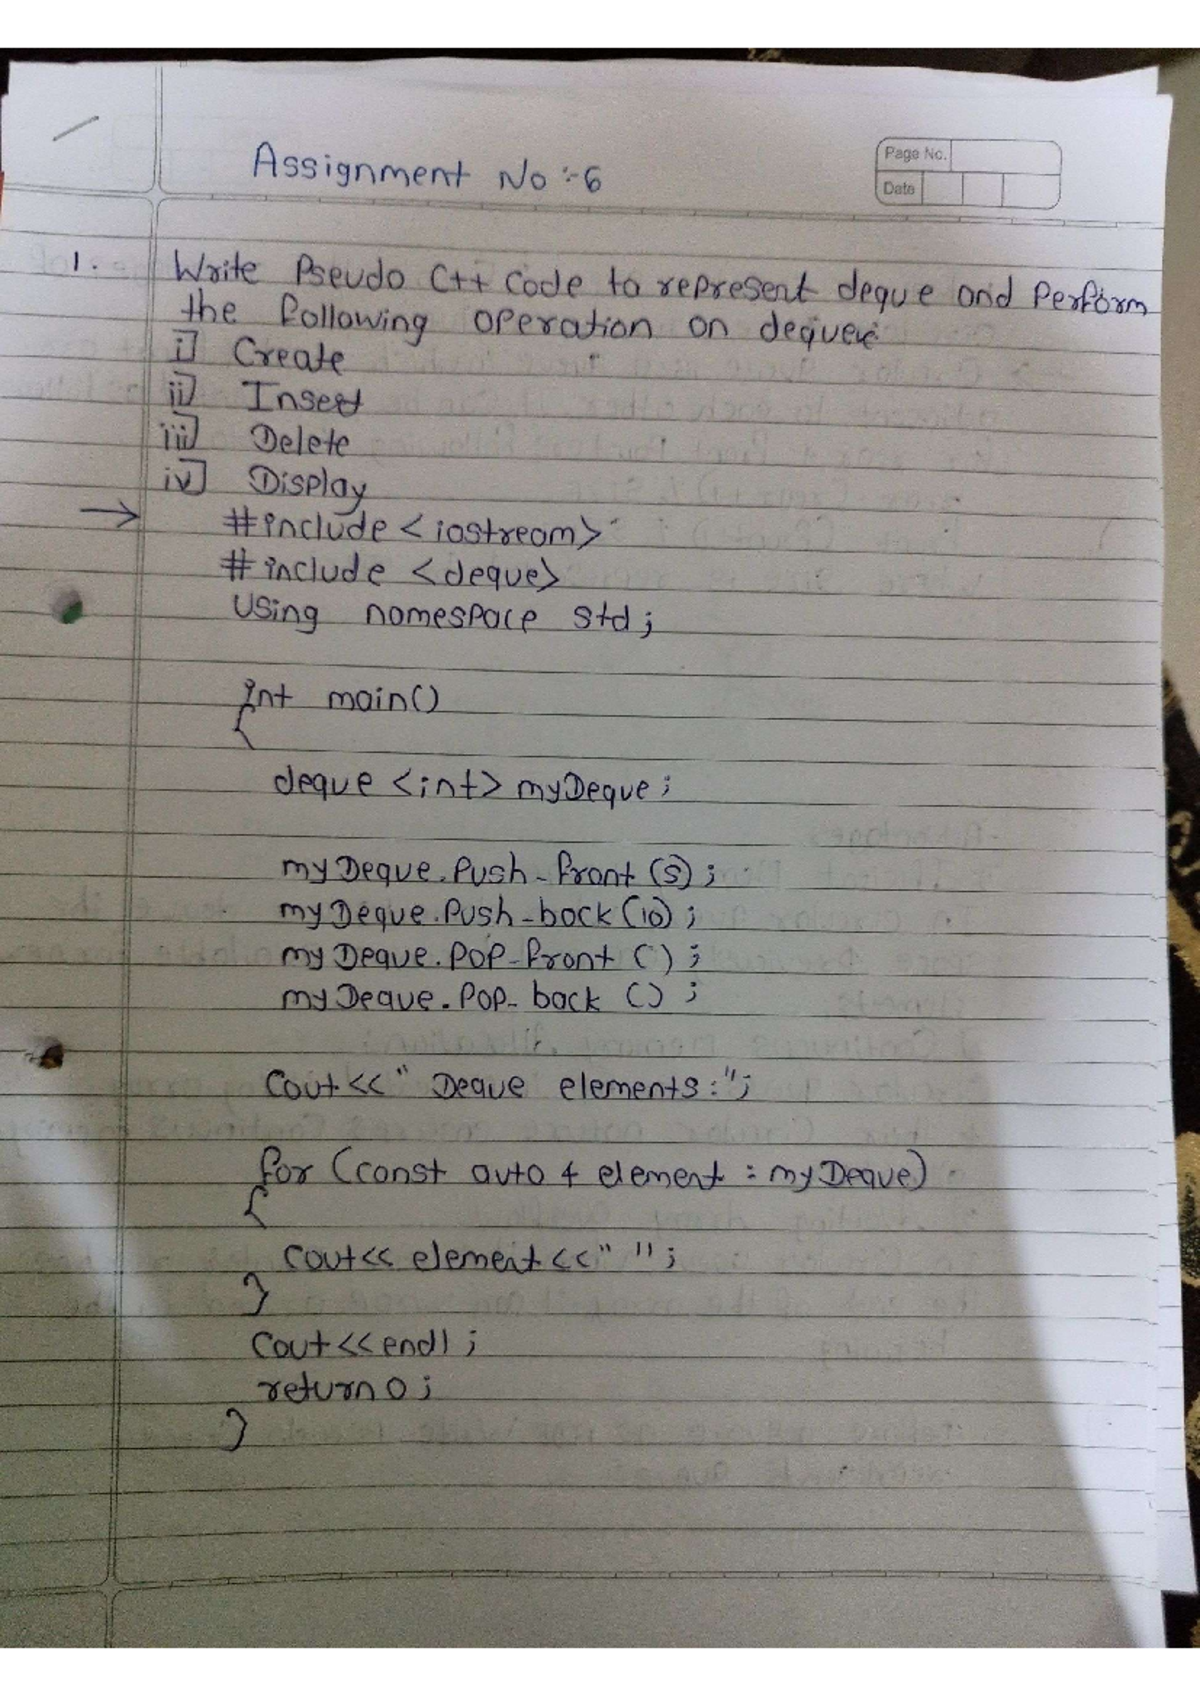 Assignment No :- 6
Page No.
Date
1. Write Pseudo C++ Code to represent deque and Perform
the following operation on dequeue
i] Create
ii] Insert
iii] Delete
iv] Display
→ #include <iostream>
#include <deque>
Using namespace std;
int main()
{
deque <int> myDeque;
myDeque.Push_front (5);
myDeque.Push_back (10);
myDeque.POP_front ( );
myDeque.Pop_back ( );
Cout<<" Deque elements:";
for (const auto & element : myDeque)
{
Cout<< element <<" ";
}
Cout<<endl;
return 0;
}